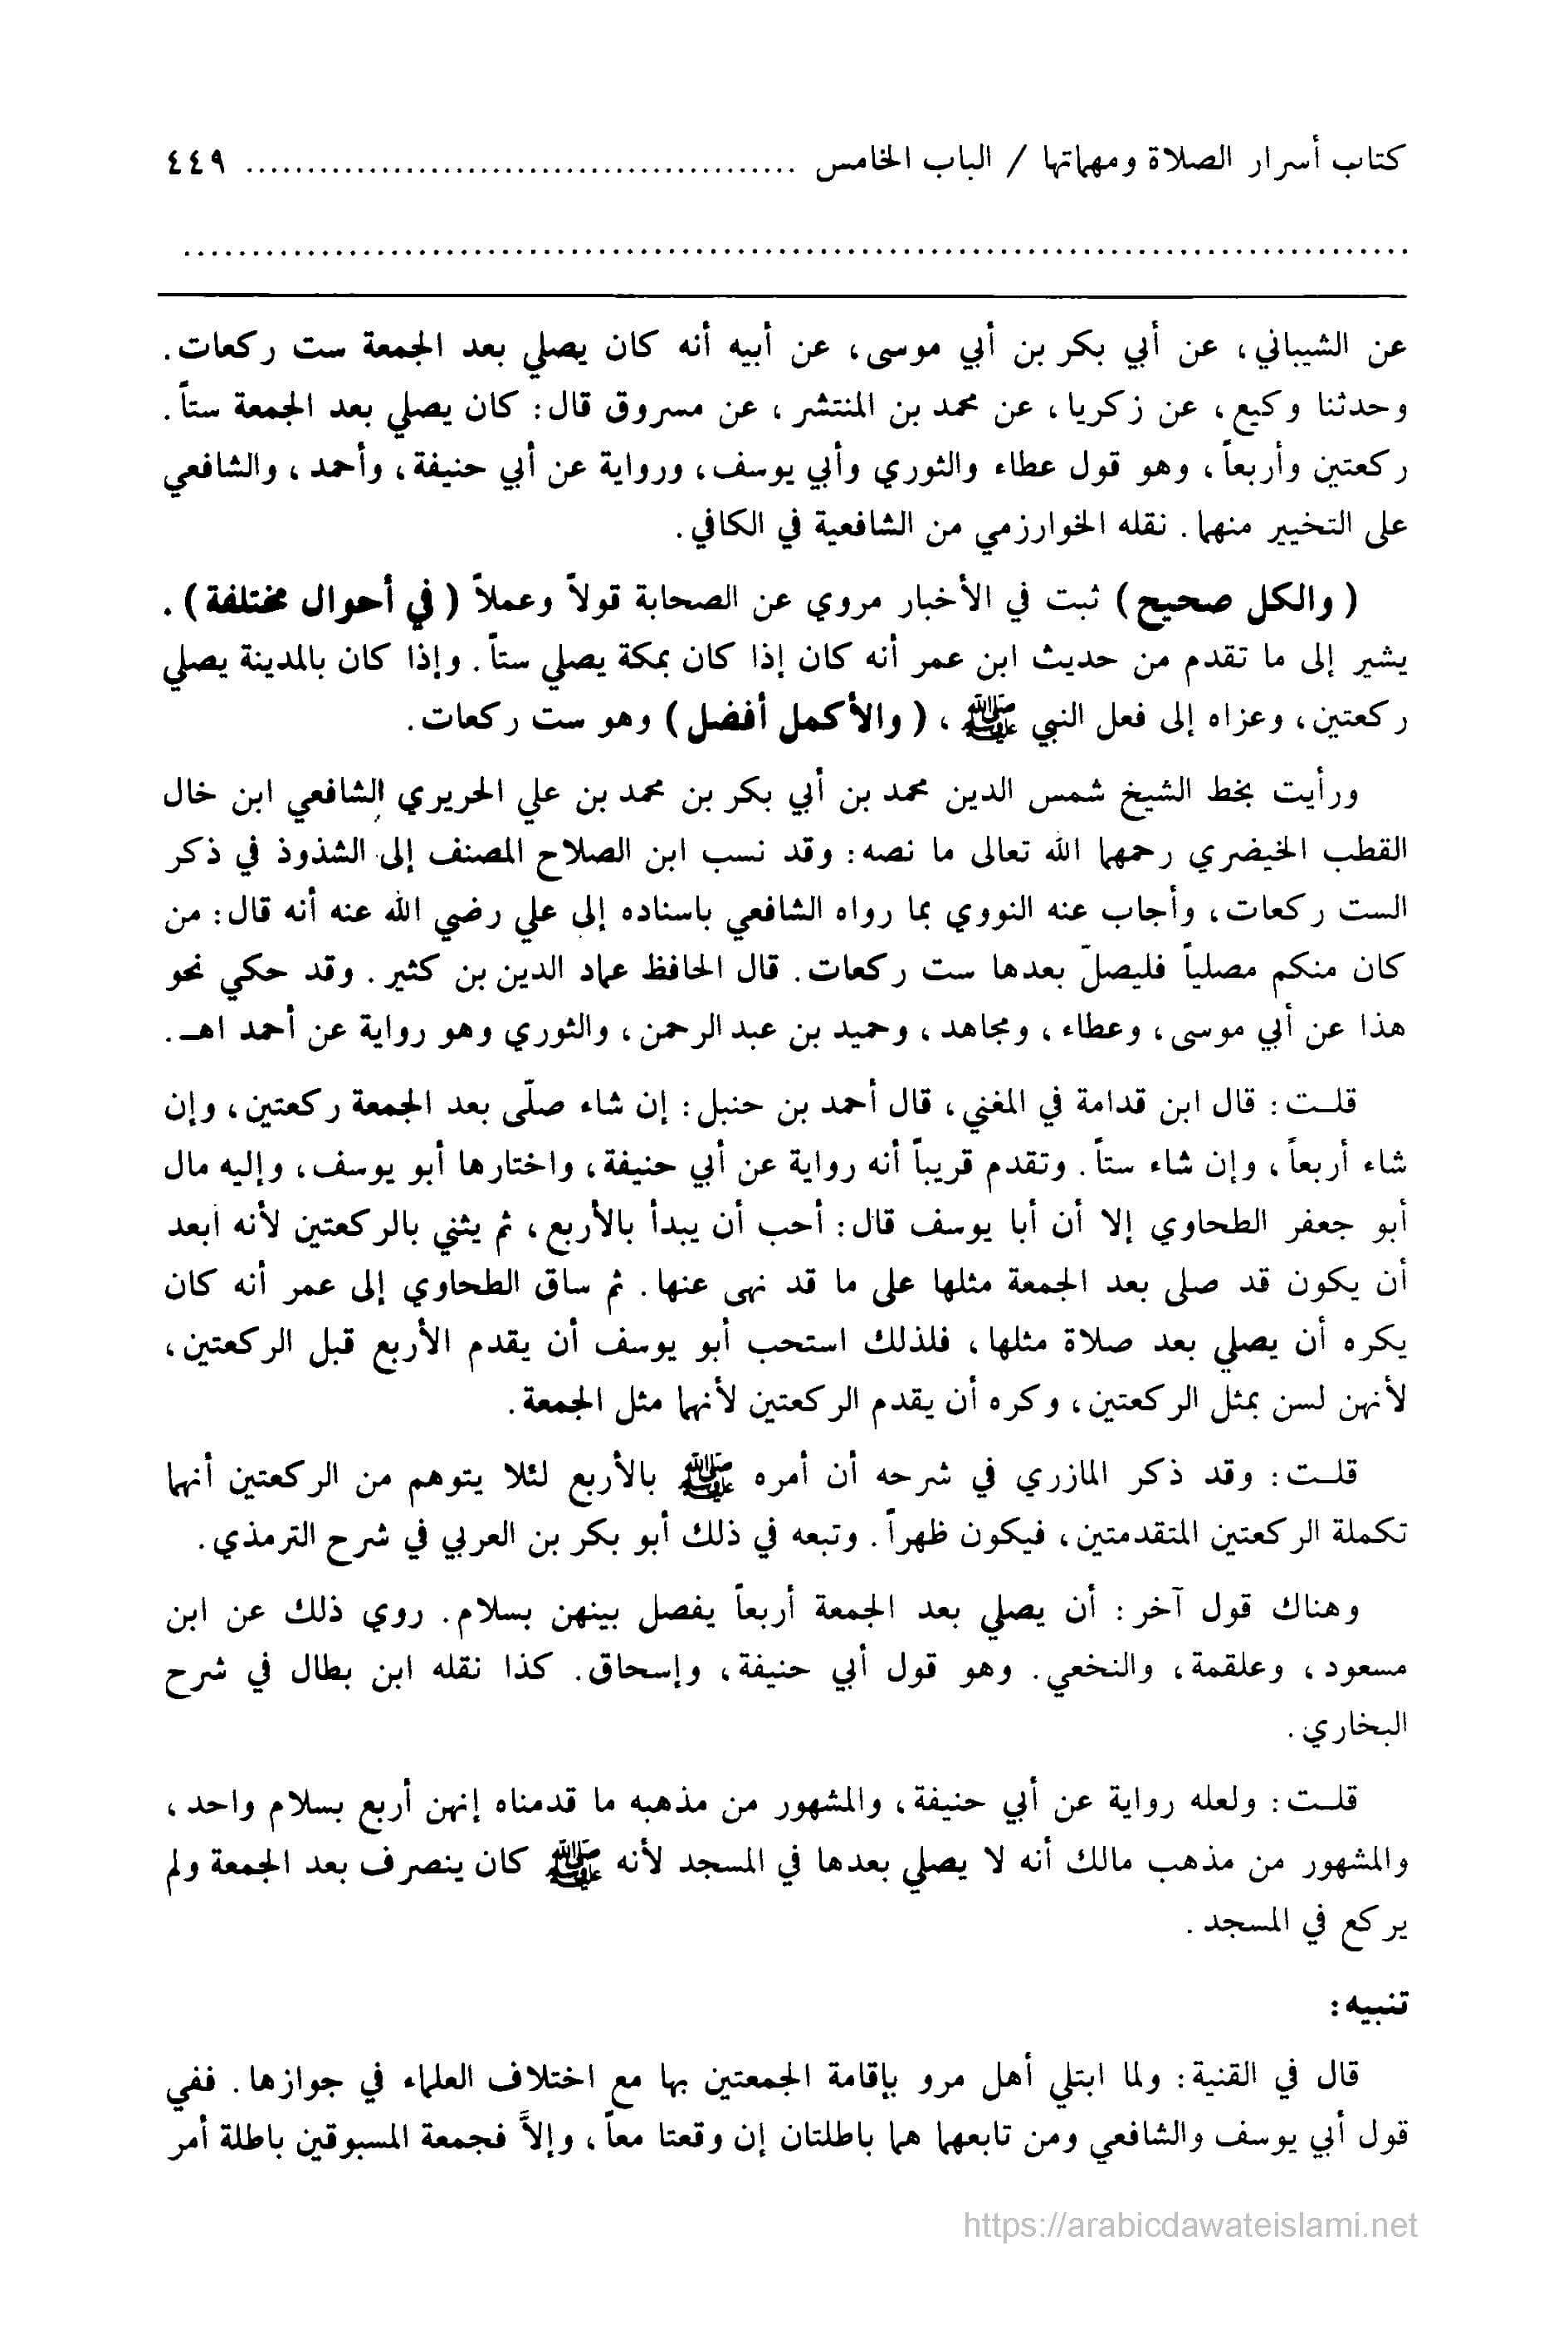 كتاب أسرار الصلاة ومهماتها / الباب الخامس ............................................. ٤٤٩
..........................................................................................
عن الشيباني، عن أبي بكر بن أبي موسى، عن أبيه أنه كان يصلي بعد الجمعة ست ركعات.
وحدثنا وكيع، عن زكريا، عن محمد بن المنتشر، عن مسروق قال: كان يصلي بعد الجمعة ستاً.
ركعتين وأربعاً، وهو قول عطاء والثوري وأبي يوسف، ورواية عن أبي حنيفة، وأحمد، والشافعي
على التخيير منهما. نقله الخوارزمي من الشافعية في الكافي.
(والكل صحيح) ثبت في الأخبار مروي عن الصحابة قولاً وعملاً (في أحوال مختلفة).
يشير إلى ما تقدم من حديث ابن عمر أنه كان إذا كان بمكة يصلي ستاً. وإذا كان بالمدينة يصلي
ركعتين، وعزاه إلى فعل النبي ﷺ، (والأكمل أفضل) وهو ست ركعات.
ورأيت بخط الشيخ شمس الدين محمد بن أبي بكر بن محمد بن علي الحريري الشافعي ابن خال
القطب الخيضري رحمهما الله تعالى ما نصه: وقد نسب ابن الصلاح المصنف إلى الشذوذ في ذكر
الست ركعات، وأجاب عنه النووي بما رواه الشافعي باسناده إلى علي رضي الله عنه أنه قال: من
كان منكم مصلياً فليصلّ بعدها ست ركعات. قال الحافظ عماد الدين بن كثير. وقد حكي نحو
هذا عن أبي موسى، وعطاء، ومجاهد، وحميد بن عبد الرحمن، والثوري وهو رواية عن أحمد اهـ.
قلت: قال ابن قدامة في المغني، قال أحمد بن حنبل: إن شاء صلّى بعد الجمعة ركعتين، وإن
شاء أربعاً، وإن شاء ستاً. وتقدم قريباً أنه رواية عن أبي حنيفة، واختارها أبو يوسف، وإليه مال
أبو جعفر الطحاوي إلا أن أبا يوسف قال: أحب أن يبدأ بالأربع، ثم يثني بالركعتين لأنه أبعد
أن يكون قد صلى بعد الجمعة مثلها على ما قد نهى عنها. ثم ساق الطحاوي إلى عمر أنه كان
يكره أن يصلي بعد صلاة مثلها، فلذلك استحب أبو يوسف أن يقدم الأربع قبل الركعتين،
لأنهن لسن بمثل الركعتين، وكره أن يقدم الركعتين لأنهما مثل الجمعة.
قلت: وقد ذكر المازري في شرحه أن أمره ﷺ بالأربع لئلا يتوهم من الركعتين أنهما
تكملة الركعتين المتقدمتين، فيكون ظهراً. وتبعه في ذلك أبو بكر بن العربي في شرح الترمذي.
وهناك قول آخر: أن يصلي بعد الجمعة أربعاً يفصل بينهن بسلام. روي ذلك عن ابن
مسعود، وعلقمة، والنخعي. وهو قول أبي حنيفة، وإسحاق. كذا نقله ابن بطال في شرح
البخاري.
قلت: ولعله رواية عن أبي حنيفة، والمشهور من مذهبه ما قدمناه إنهن أربع بسلام واحد،
والمشهور من مذهب مالك أنه لا يصلي بعدها في المسجد لأنه ﷺ كان ينصرف بعد الجمعة ولم
يركع في المسجد.
تنبيه:
قال في القنية: ولما ابتلي أهل مرو بإقامة الجمعتين بها مع اختلاف العلماء في جوازها. ففي
قول أبي يوسف والشافعي ومن تابعهما هما باطلتان إن وقعتا معاً، وإلاَّ فجمعة المسبوقين باطلة أمر
https://arabicdawateislami.net